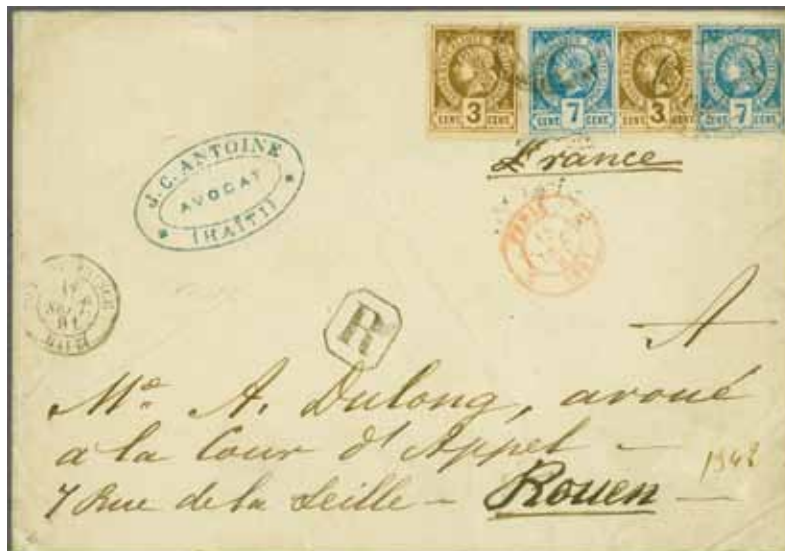 3 7 3 7
CENT. CENT. CENT. CENT. CENT. CENT. CENT. CENT.
France
J. C. ANTOINE
AVOCAT
(HAÏTI)
R
A
Me. A. Dulong, avoué
à la Cour d'Appel -
7 Rue de la Seille - Rouen -